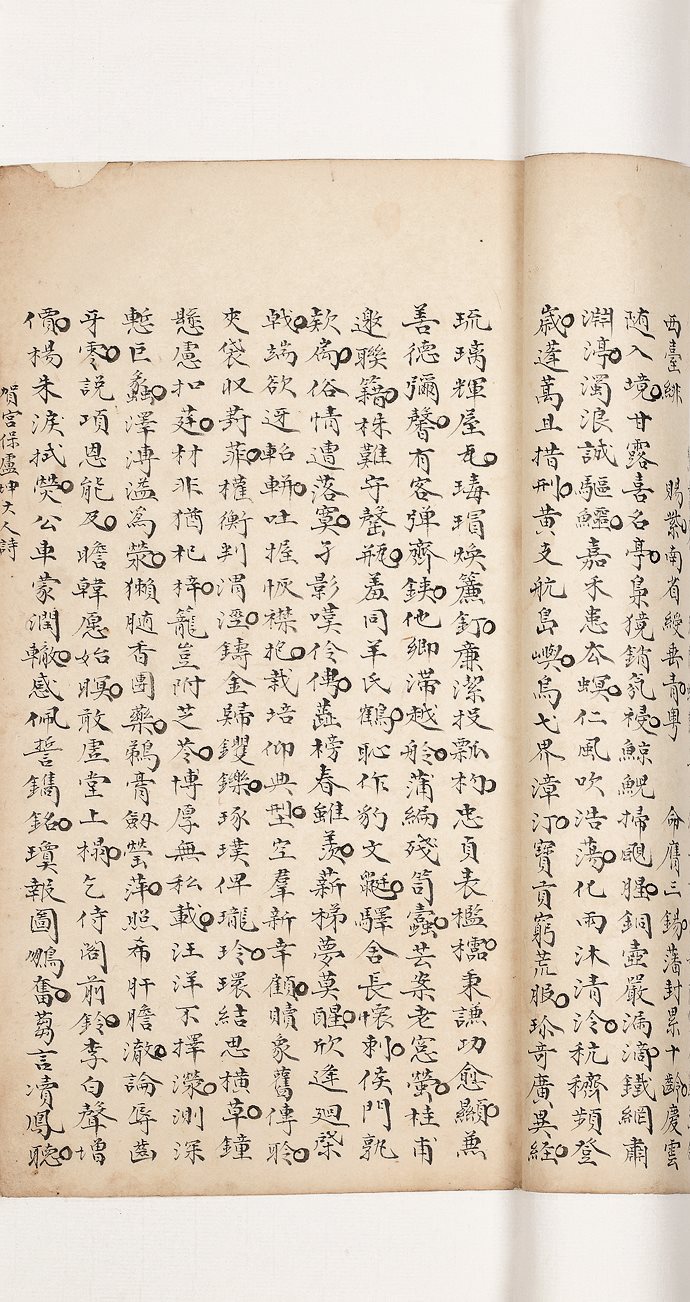 西臺緋　賜紫南省綬垂青粵　命膺三錫藩封累十齡慶雲
随入境甘露喜名亭梟獍銷氛祲鯨鯢掃颶腥銅壺嚴漏滴鐵網肅
淵渟濁浪誠驅鱷嘉禾患去螟仁風吹浩蕩化雨沐清泠秔穧頻登
歲蓬萬且措刑黄支航島嶼烏弋界漳汀寳貢窮荒服珍奇廣異経
琉璃輝屋瓦瑇瑁焕簾釘廉潔投瓢杓忠貞表檻櫺秉謙功愈顯兼
善德彌馨有客弹齊鋏他鄉滯越舲蒲編殘笥蠹芸案老窓螢桂甫
邀聯籍株難守罄瓶羞同羊氏鶴恥作豹文鼮驛舍長懐刺侯門孰
欵扃俗情遭落寞孑影嘆伶俜蕋榜春雖羡薪梯夢莫醒欣逢廻棨
戟端欲迓軺軿吐握恢襟抱栽培仰典型空羣新幸顧賾象舊傳聆
夾袋収葑菲權衡判渭涇鑄金歸钁鑠琢璞俾瓏玲環結思横草鐘
懸慮扣莛材非猶杞梓籠豈附芝苓博厚無私載汪洋不擇濙測深
慙巨蠡澤溥溢為滎獺髄香團藥鵜膏劔瑩萍照希肝膽澈論辱齒
牙零說項恩能及瞻韓愿始暝敢虛堂上榻乞侍閣前鈴李白聲增
價楊朱淚拭熒公車蒙潤轍感佩誓鐫銘瓊報圖鵬奮蒭言凟鳳聽
賀宮保盧坤夫人詩